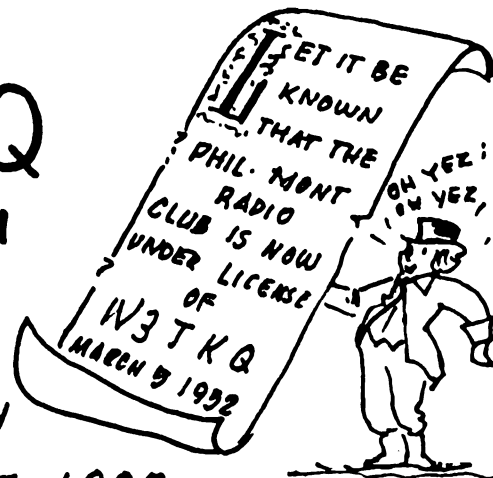 LET IT BE
KNOWN
THAT THE
PHIL-MONT
RADIO
CLUB IS NOW
UNDER LICENSE
OF
W3TKQ
MARCH 5 1952
OH YEZ!
OH YEZ,
Q